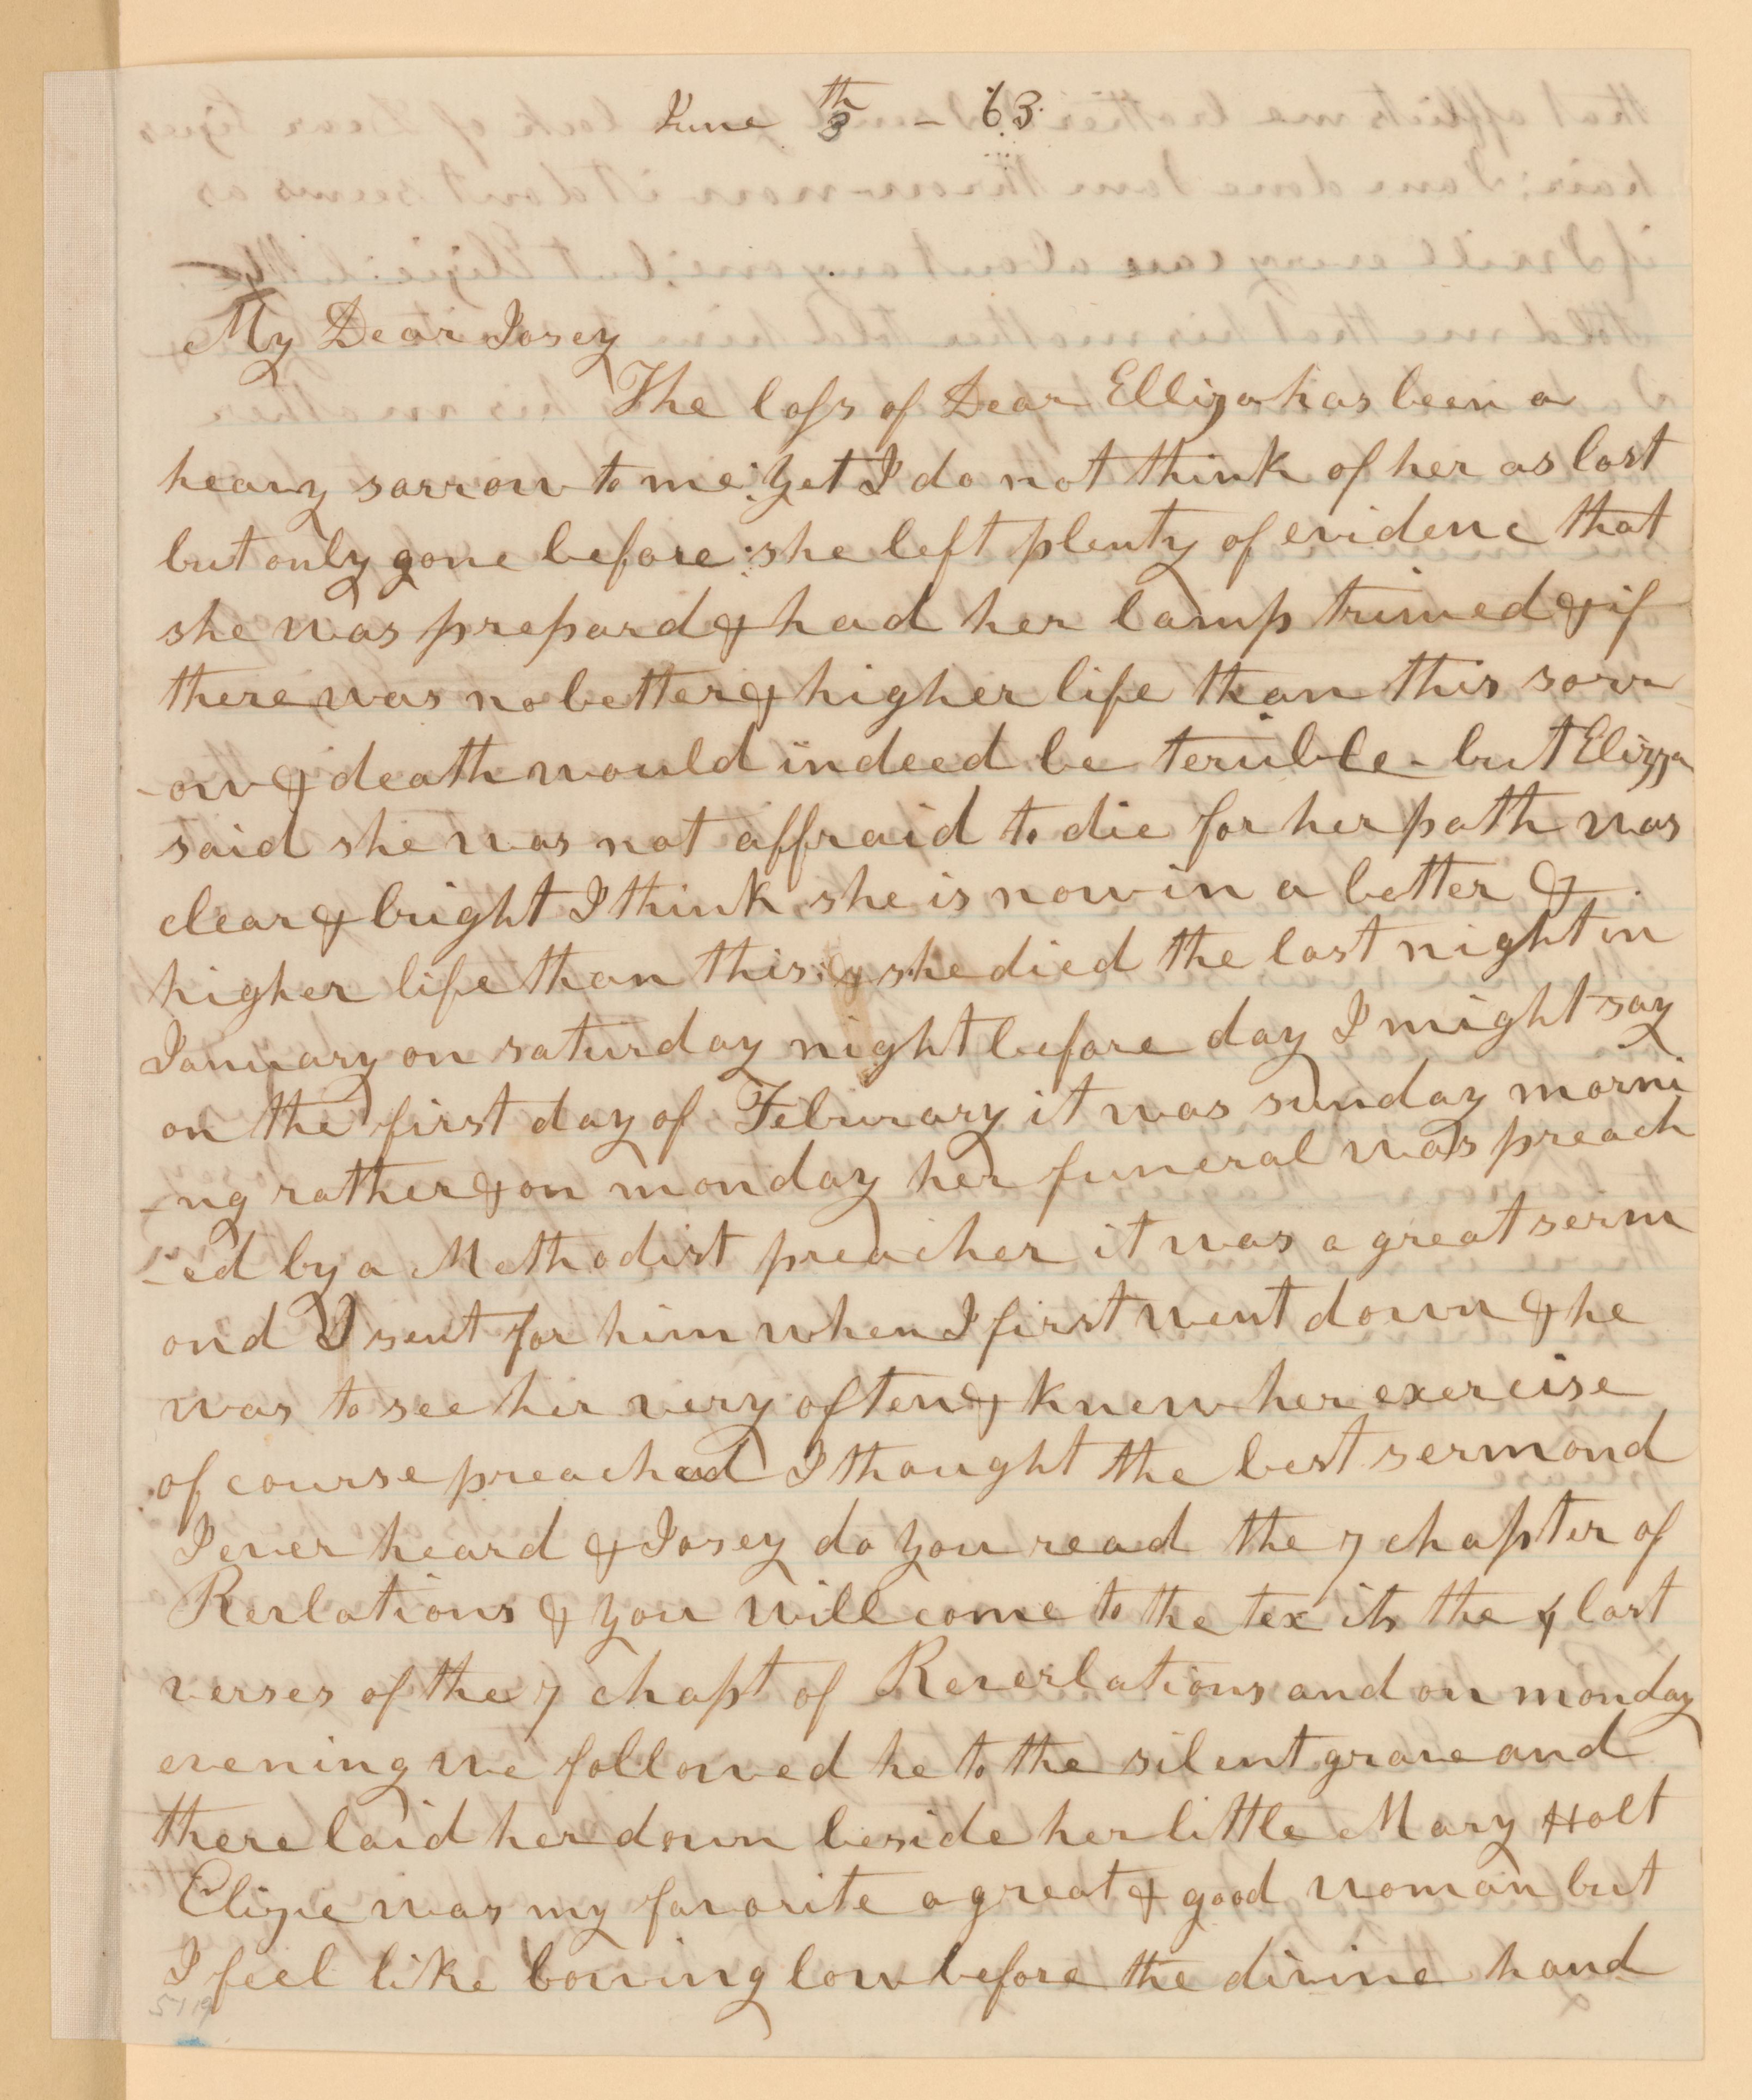 June 3th - 63.
My Dear Josey
The loss of Dear Elliza has been a
heavy sorrow to me: yet I do not think of her as lost
but only gone before: she left plenty of evidenc that
she was prepard & had her lamp trimed & if
there was no better & higher life than this sorr
-ow & death would indeed be terrible - but Elizza
said she was not affraid to die for her path was
clear & bright I think she is now in a better &
higher life than this: & she died the last night in
January on saturday night before day I might say
on the first day of Feburary it was sunday morni
-ng rather & on monday her funeral was preach
-ed by a Methodist preacher it was a great serm
ond I sent for him when I first went down & he
was to see her very often & knew her exercise
of course preached I thought the best sermond
I ever heard & Josey do you read the 7 chapter of
Rerlations & you will come to the tex its the 4 last
verses of the 7 chapt of Reverlations and on monday
evening we followed he to the silent grave and
there laid her down beside her little Mary Holt
Elizie was my favorite a great & good woman but
I feel like bowing low before the divine hand